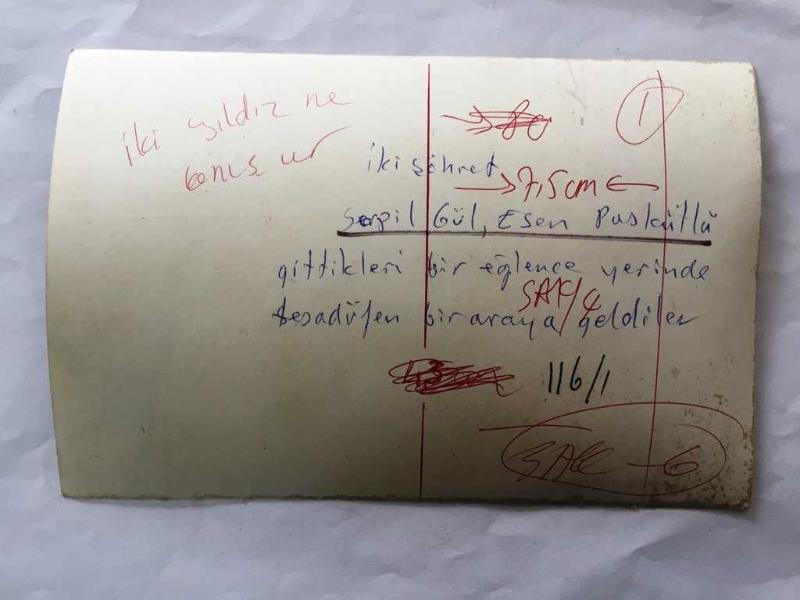 iki yıldız ne
konuşur
1
iki şöhret
7,5cm
Serpil Gül, Esen Püsküllü
gittikleri bir eğlence yerinde
tesadüfen bir araya geldiler
116/1